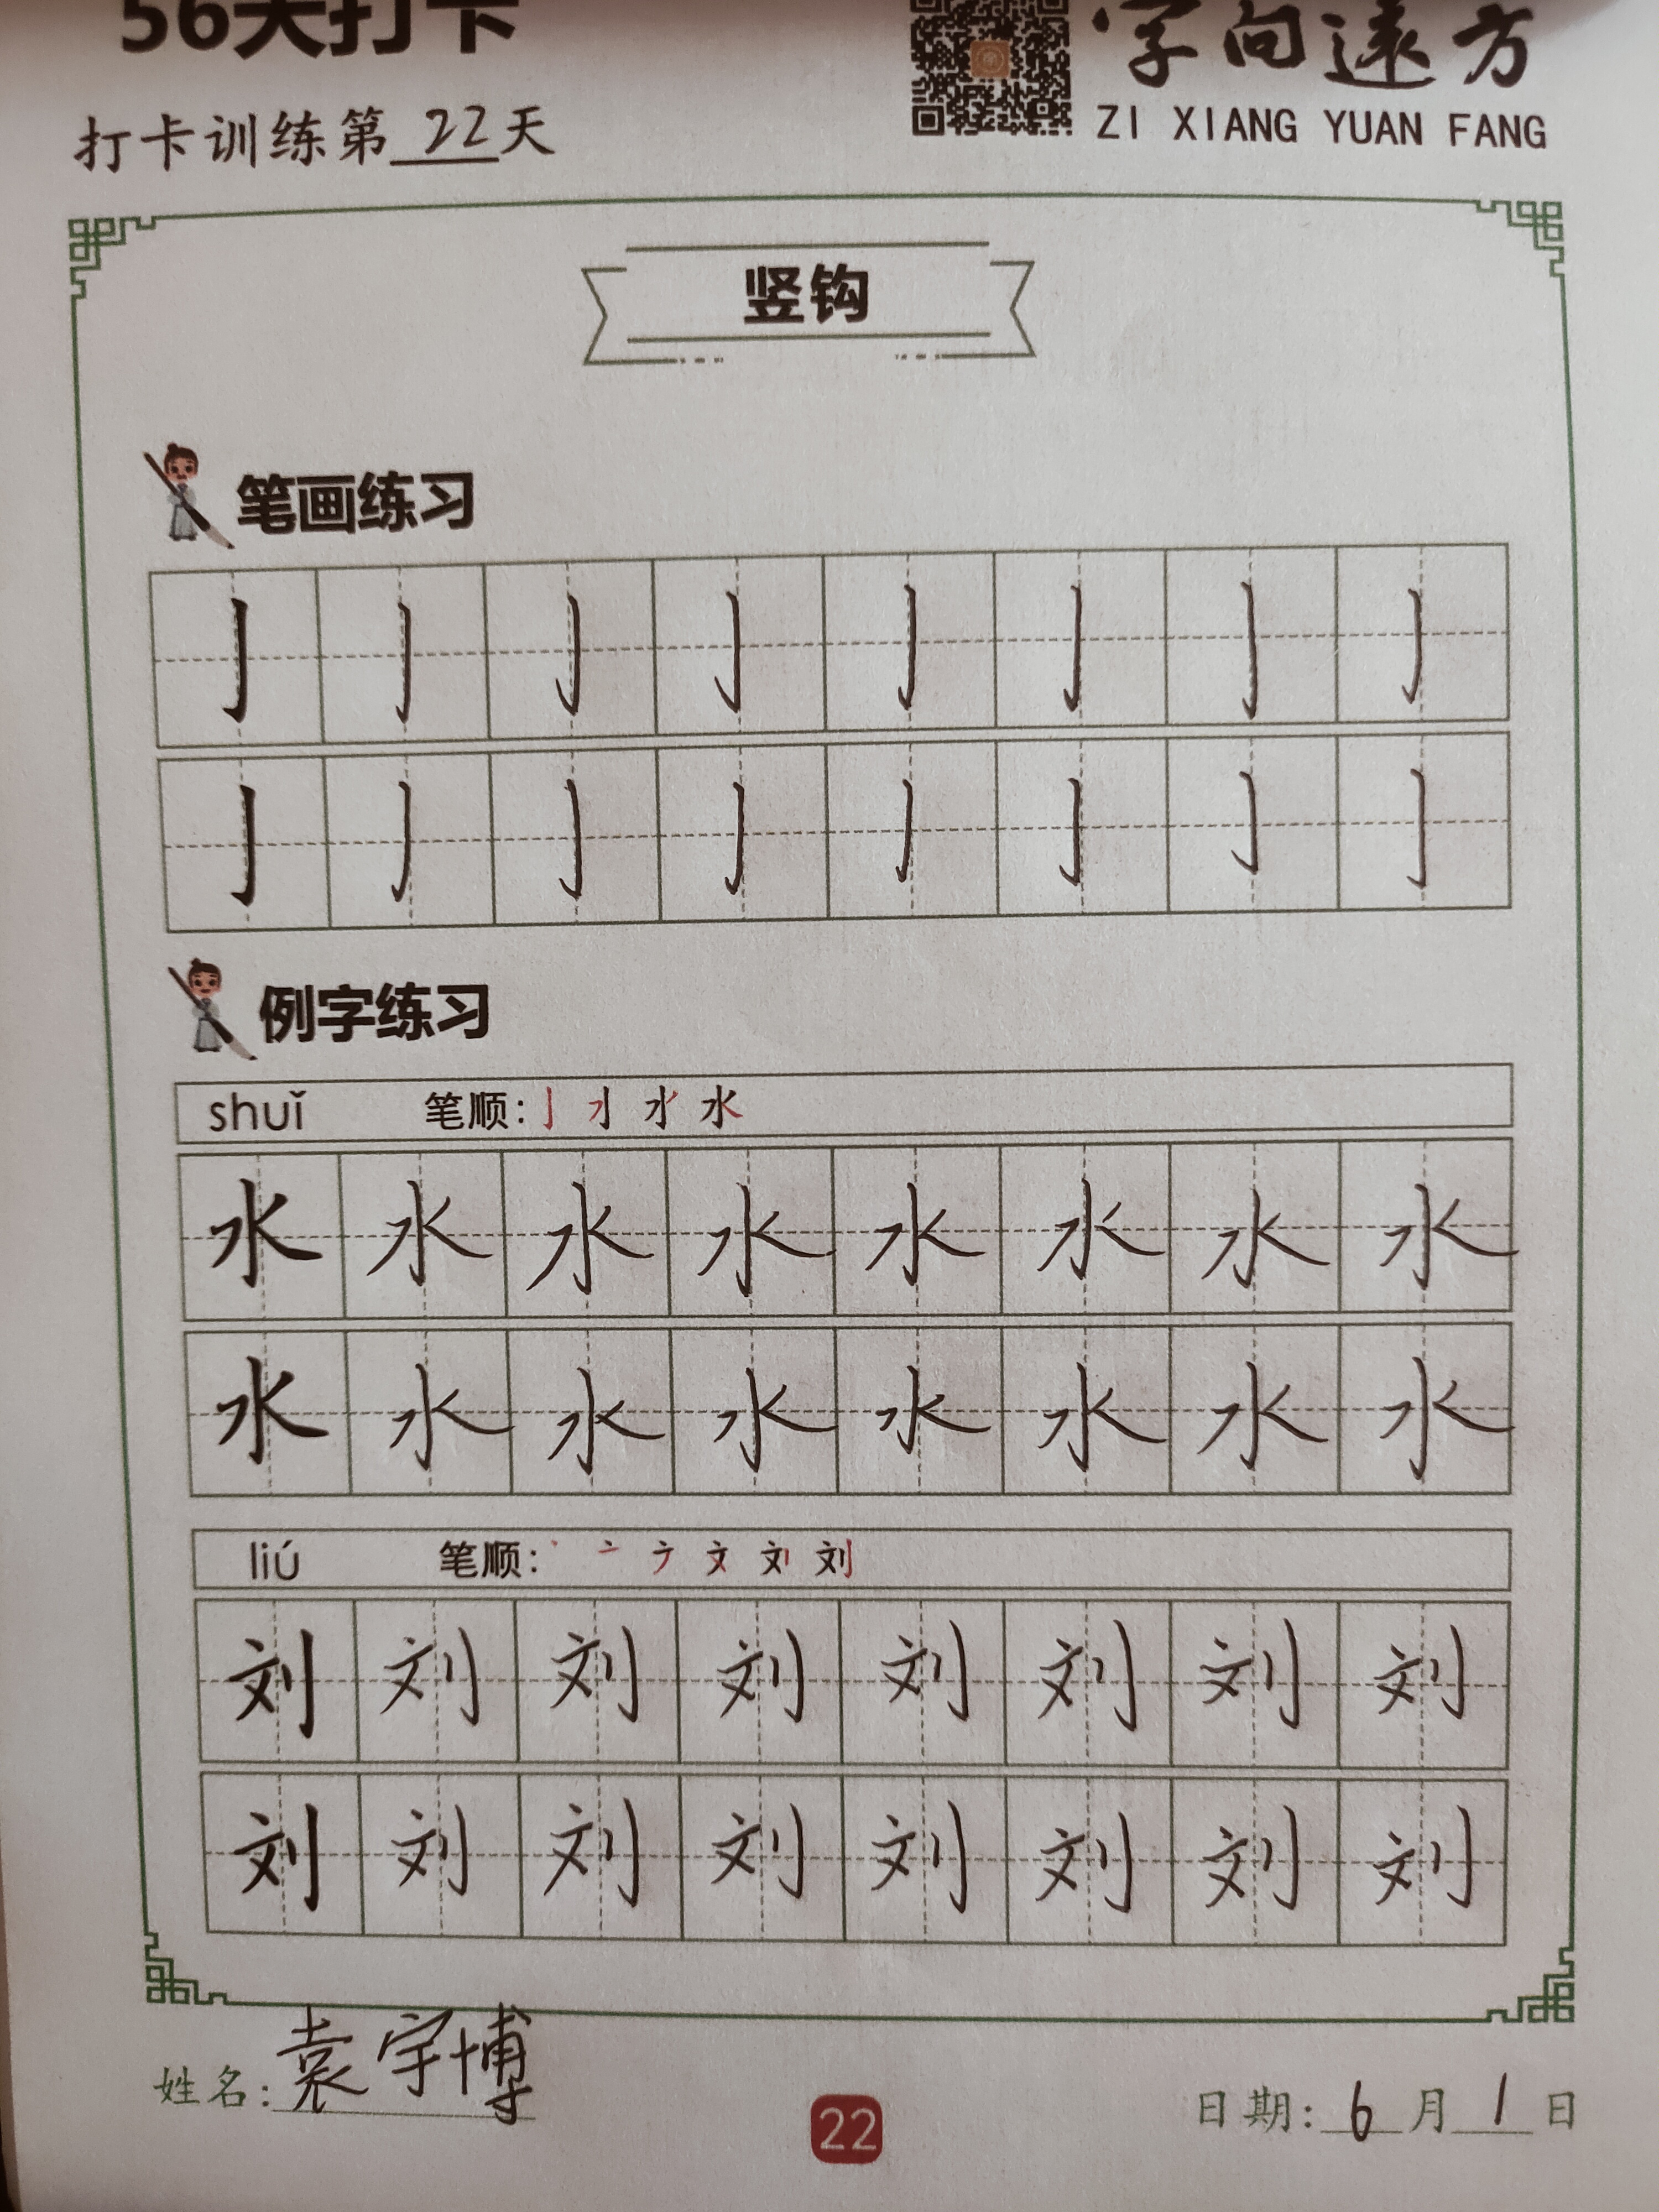 56天打卡
字向远方
ZI XIANG YUAN FANG
打卡训练第22天
竖钩
笔画练习
亅亅亅亅亅亅亅亅
亅亅亅亅亅亅亅亅
例字练习
shuǐ 笔顺:
水水水水水水水水
水水水水水水水水
liú 笔顺:
刘刘刘刘刘刘刘刘
刘刘刘刘刘刘刘刘
姓名:袁宇博
22
日期:6月1日